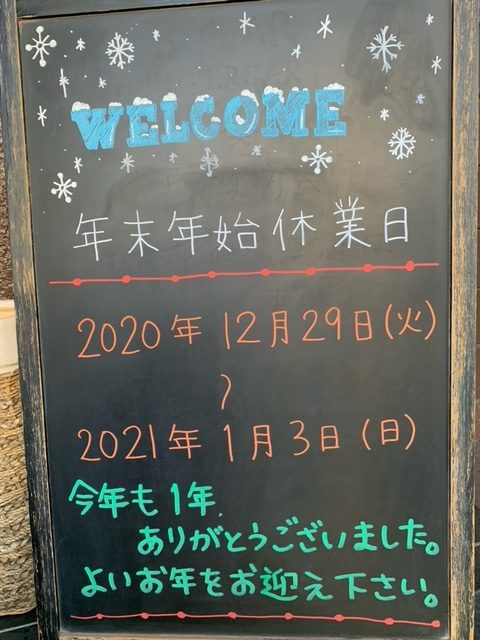 WELCOME
年末年始休業日
2020年12月29日(火)
〜
2021年1月3日(日)
今年も1年
ありがとうございました。
よいお年をお迎え下さい。